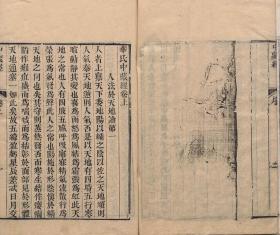 華氏中藏經卷上
人法於天地論第一
人者上稟天下委地陽以輔之陰以佐之天地順則
人氣泰天地逆則人氣否是以天地有四時五行寒
暄動靜其變也喜為雨怒為風結為霜張為虹此天
地之常也人有四肢五臟呼吸寤寐精氣流散行為
榮張為氣發為聲此人之常也陽施於形陰慎於精天
地之同也失其守則蒸熱發否而寒生結作癭瘤
陷作癰疽盛而為喘減而為枯彰於面部見於形體
天地通塞一如此矣故五緯盈虧星辰差忒日月交